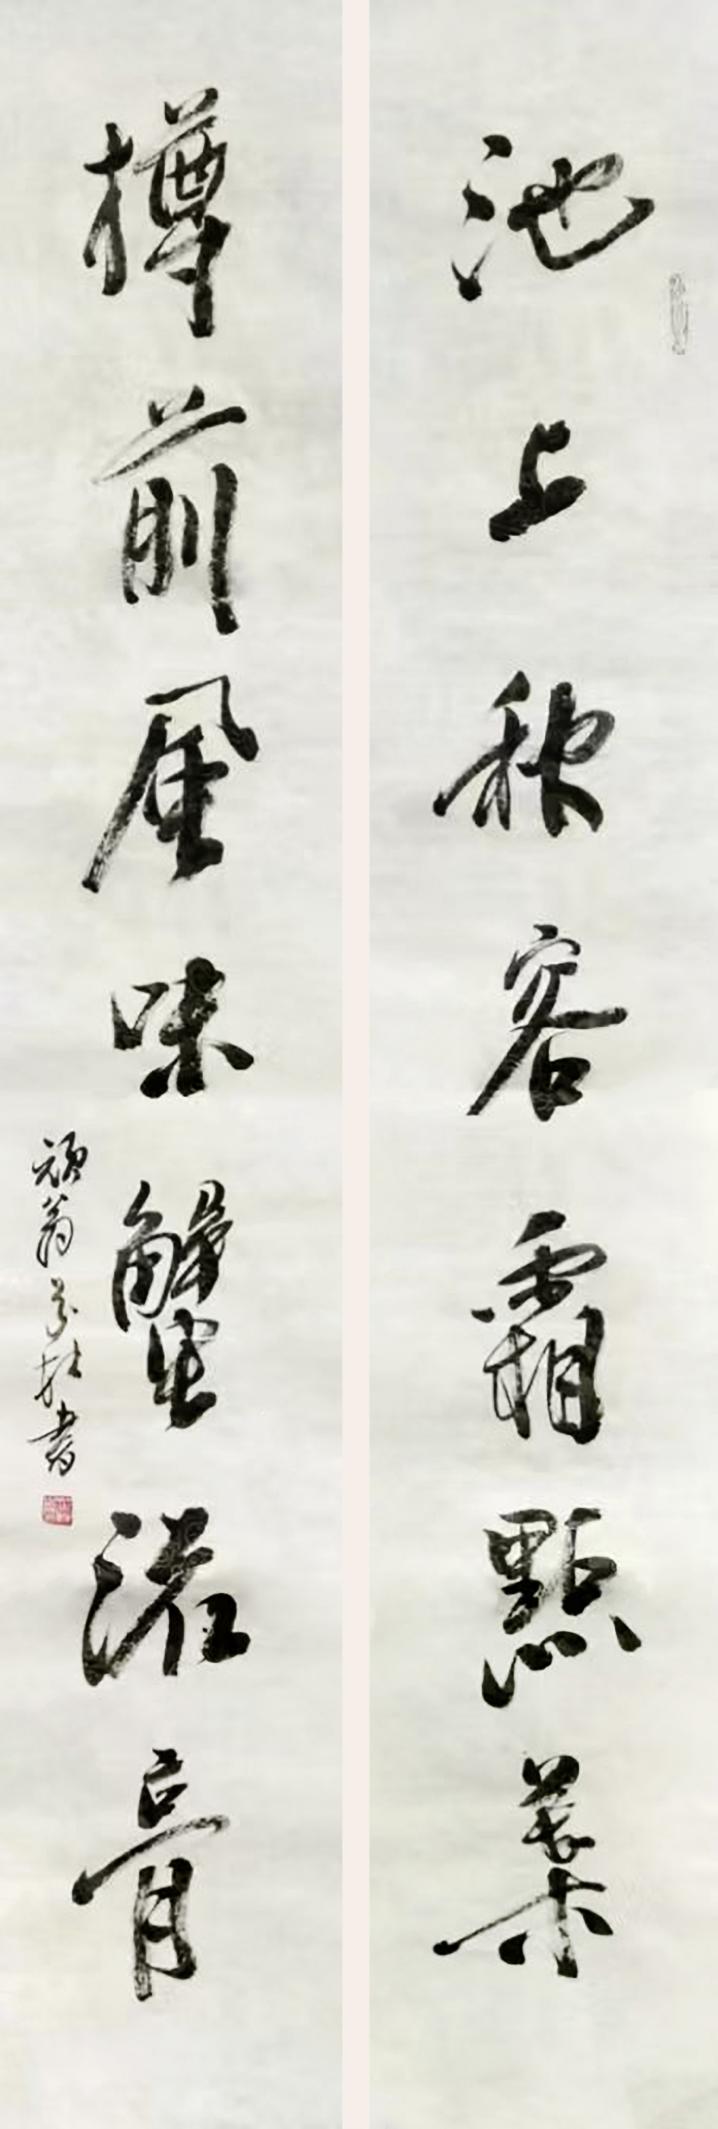 池上秋容霜點葉
樽前風味蟹膏
頑翁書